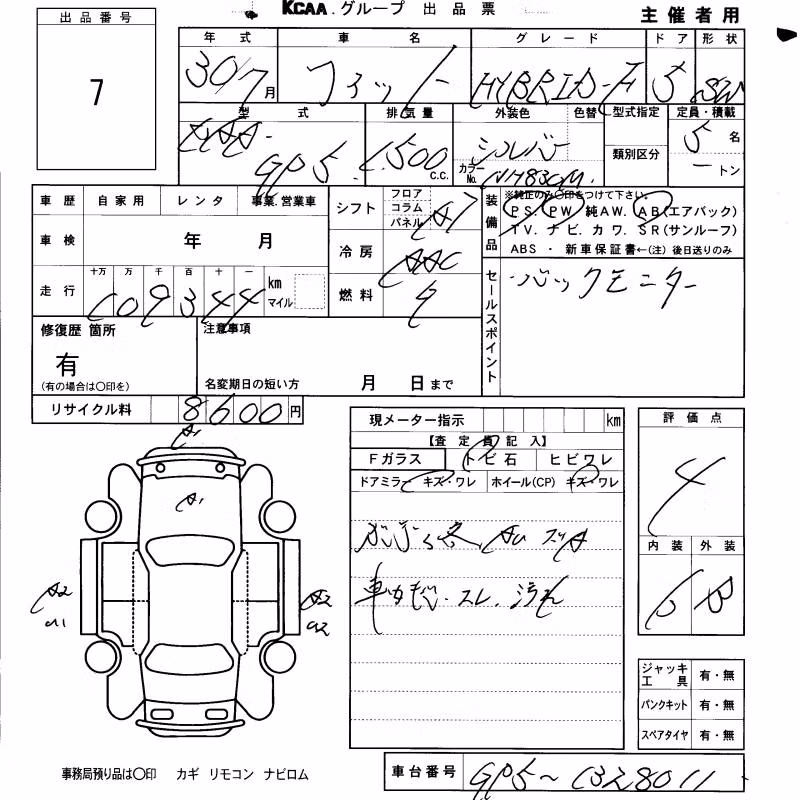 KCAA.グループ 出品票
主催者用
出品番号
7
年式 車名 グレード ドア 形状
30/7月 フィット HYBRID-F 5 SW
型式 排気量 外装色 色替 型式指定 定員・積載
DAA-GP5 1,500 C.C. シルバー カラーNo. NH830M 類別区分 5名 ートン
車歴 自家用 レンタ 事業.営業車
車検 年 月
走行 十万 万 千 百 十 一 km マイル
109344
シフト フロア コラム パネル AT
冷房 AAC
燃料
装備品 ※純正のみ〇印をつけて下さい。
PS. PW. 純AW. AB(エアバック)
TV. ナビ. カワ. SR(サンルーフ)
ABS ・ 新車保証書←(注) 後日送りのみ
セールスポイント
・バックモニター
修復歴 箇所
有
(有の場合は〇印を)
注意事項
名変期日の短い方 月 日まで
リサイクル料 8600円
現メーター指示 km
【査定員記入】
Fガラス トビ石 ヒビワレ
ドアミラー キズ・ワレ ホイール(CP) キズ・ワレ
スレ、汚れ
評価点
4
内装 外装
B
A1
A1
A2
A2
ジャッキ工具 有・無
パンクキット 有・無
スペアタイヤ 有・無
事務局預り品は〇印 カギ リモコン ナビロム
車台番号 GP5～1328011